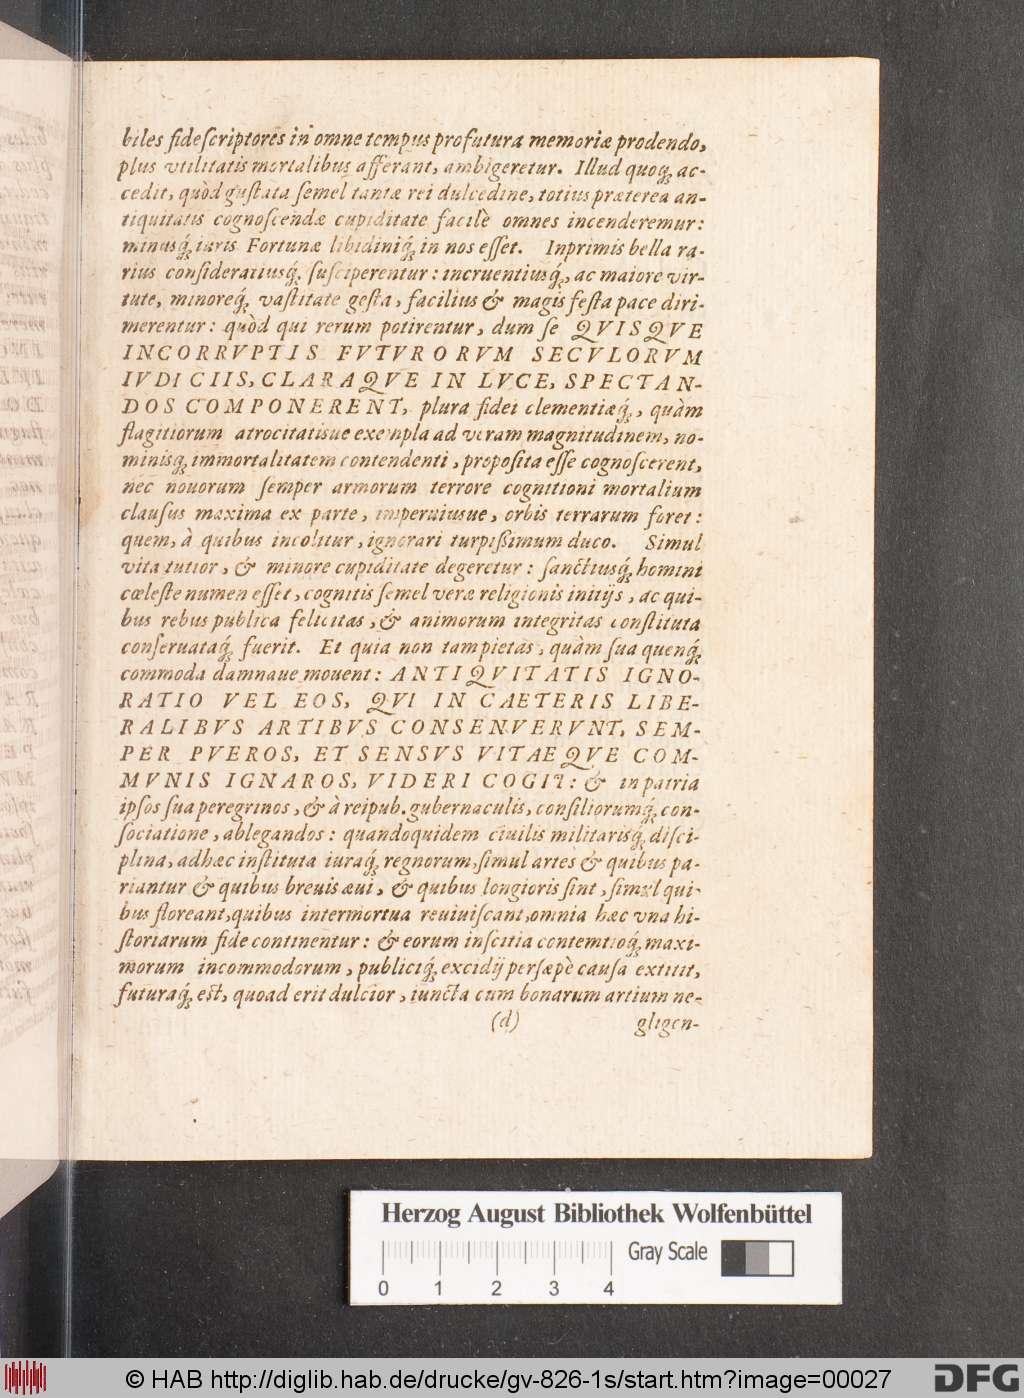 biles fide scriptores in omne tempus profutura memoriæ prodendo,
plus vtilitatis mortalibus afferant, ambigeretur. Illud quoq; ac-
cedit, quòd gustata semel tantæ rei dulcedine, totius præterea an-
tiquitatis cognoscendæ cupiditate facilè omnes incenderemur:
minusq́; iuris Fortunæ libidiniq́; in nos esset. Inprimis bella ra-
rius consideratiusq́; susciperentur: incruentiusq́;, ac maiore vir-
tute, minoreq́; vastitate gesta, facilius & magis festa pace diri-
merentur: quòd qui rerum potirentur, dum se QVISQVE
INCORRVPTIS FVTVRORVM SECVLORVM
IVDICIIS, CLARAQVE IN LVCE, SPECTAN-
DOS COMPONERENT, plura fidei clementiæq́;, quàm
flagitiorum atrocitatisue exempla ad veram magnitudinem, no-
minisq; immortalitatem contendenti, proposita esse cognoscerent,
nec nouorum semper armorum terrore cognitioni mortalium
clausus maxima ex parte, imperuiusue, orbis terrarum foret:
quem, à quibus incolitur, ignorari turpißimum duco. Simul
vita tutior, & minore cupiditate degeretur: sanctiusq́; homini
cœleste numen esset, cognitis semel veræ religionis initijs, ac qui-
bus rebus publica felicitas, & animorum integritas constituta
conseruataq́; fuerit. Et quia non tam pietas, quàm sua quenq́;
commoda damnaue mouent: ANTIQVITATIS IGNO-
RATIO VEL EOS, QVI IN CAETERIS LIBE-
RALIBVS ARTIBVS CONSENVERVNT, SEM-
PER PVEROS, ET SENSVS VITAEQVE COM-
MVNIS IGNAROS, VIDERI COGIT: & in patria
ipsos sua peregrinos, & à reipub. gubernaculis, consiliorumq́; con-
sociatione, ablegandos: quandoquidem ciuilis militarisq́; disci-
plina, adhæc instituta iuraq́; regnorum, simul artes & quibus pa-
riantur & quibus breuis æui, & quibus longioris sint, simul qui-
bus floreant, quibus intermortua reuiuiscant, omnia hæc vna hi-
storiarum fide continentur: & eorum inscitia contemtioq́; maxi-
morum incommodorum, publiciq́; excidij persæpè causa extitit,
futuraq́; est, quoad erit dulcior, iuncta cum bonarum artium ne-
(d) gligen-
Herzog August Bibliothek Wolfenbüttel
Gray Scale
0 1 2 3 4
© HAB http://diglib.hab.de/drucke/gv-826-1s/start.htm?image=00027
DFG